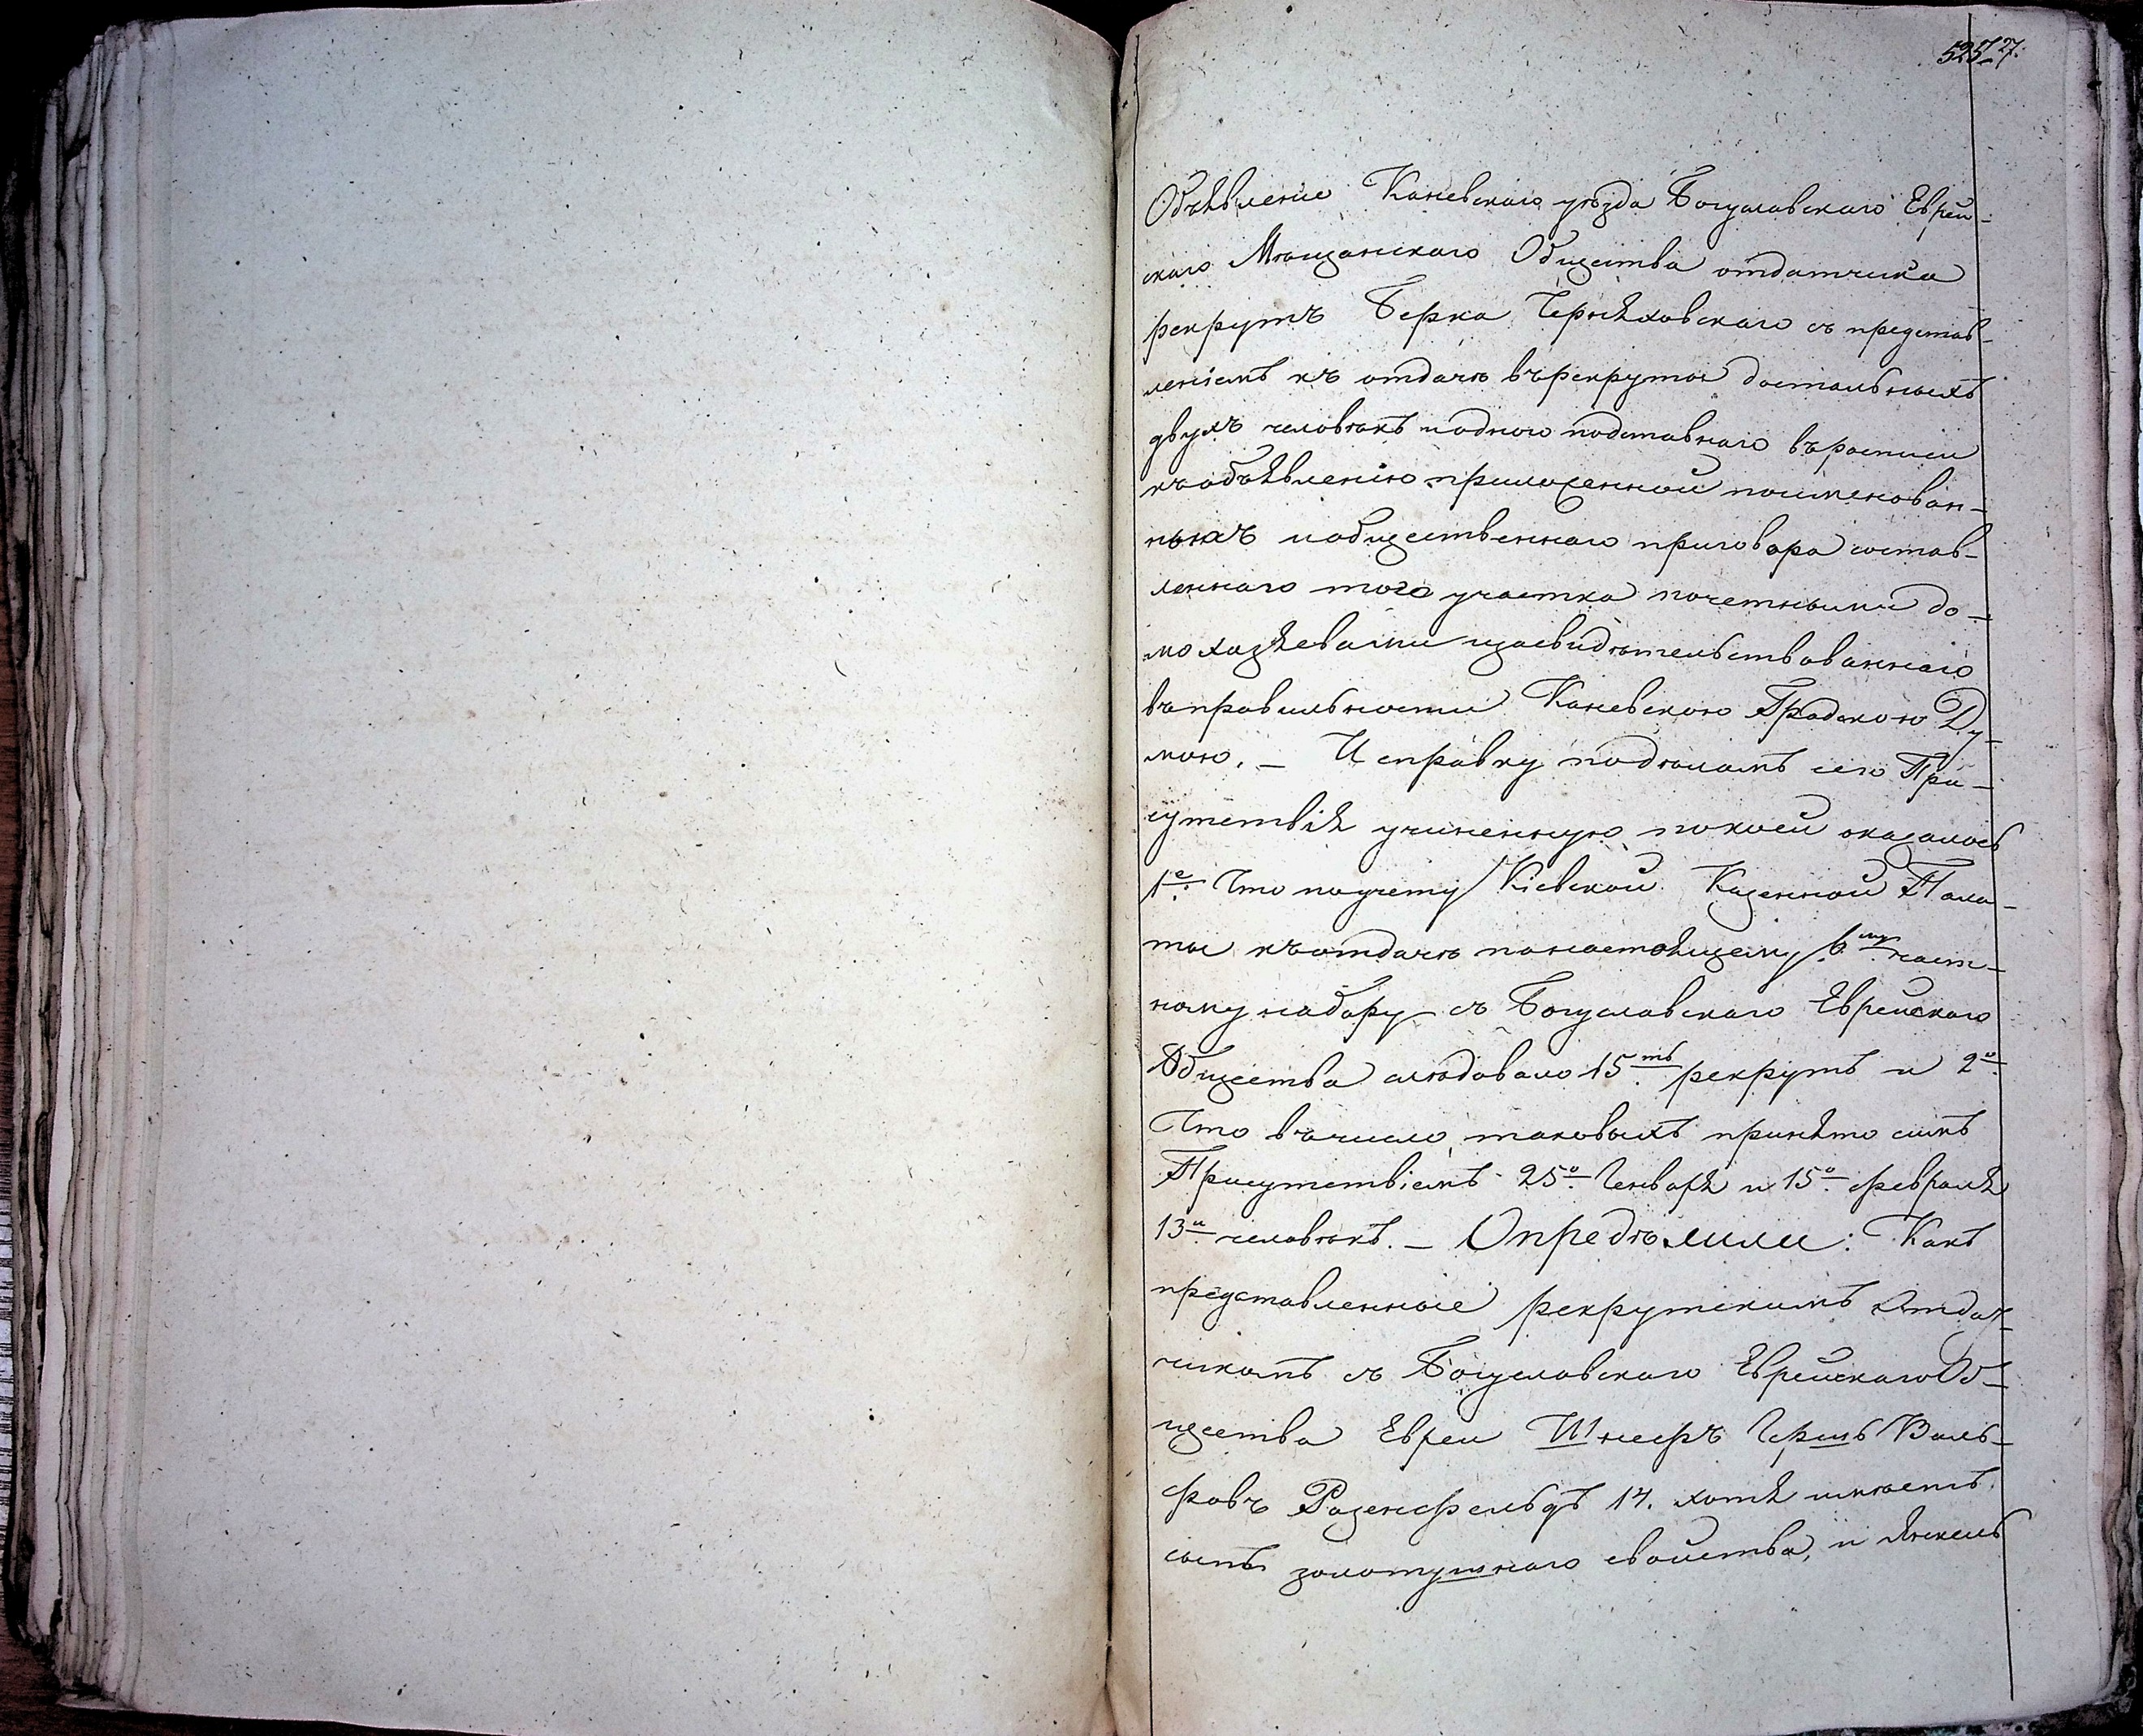 Объявленіе Каневскаго уѣзда Богуславскаго Еврей-
скаго Мѣщанскаго Общества отдатчика
рекрутъ Берка Черняховскаго съ представ-
леніемъ къ отдачѣ върекруты достальныхъ
двухъ человѣкъ иодного подставнаго въросписи
къобъявленію приложенной поименован-
ныхъ иобщественнаго приговора состав-
леннаго того участка почетными до-
мохозяевами изасвидѣтельствованнаго
въправильности Каневскою Градскою Ду-
мою. — И справку подѣламъ сего При-
сутствія учиненную, покоей оказалось
1е. Что поучету Кіевской Казенной Пала-
ты къотдачѣ понастоящему 6му част-
ному набору съ Богуславскаго Еврейскаго
Общества слѣдовало 15ть рекрутъ и 2о.
Что въчисло таковыхъ принято симъ
Присутствіемъ 25о. Генваря и 15о. февраля
13и человѣкъ. — Опредѣлили: Какъ
представленные рекрутскимъ Отдат-
чикомъ съ Богуславскаго Еврейскаго Об-
щества Евреи Шнееръ Гершъ Воль-
фовъ Розенфельдъ 14. хотя имѣетъ
сыпь золотушнаго свойства, и Янкель